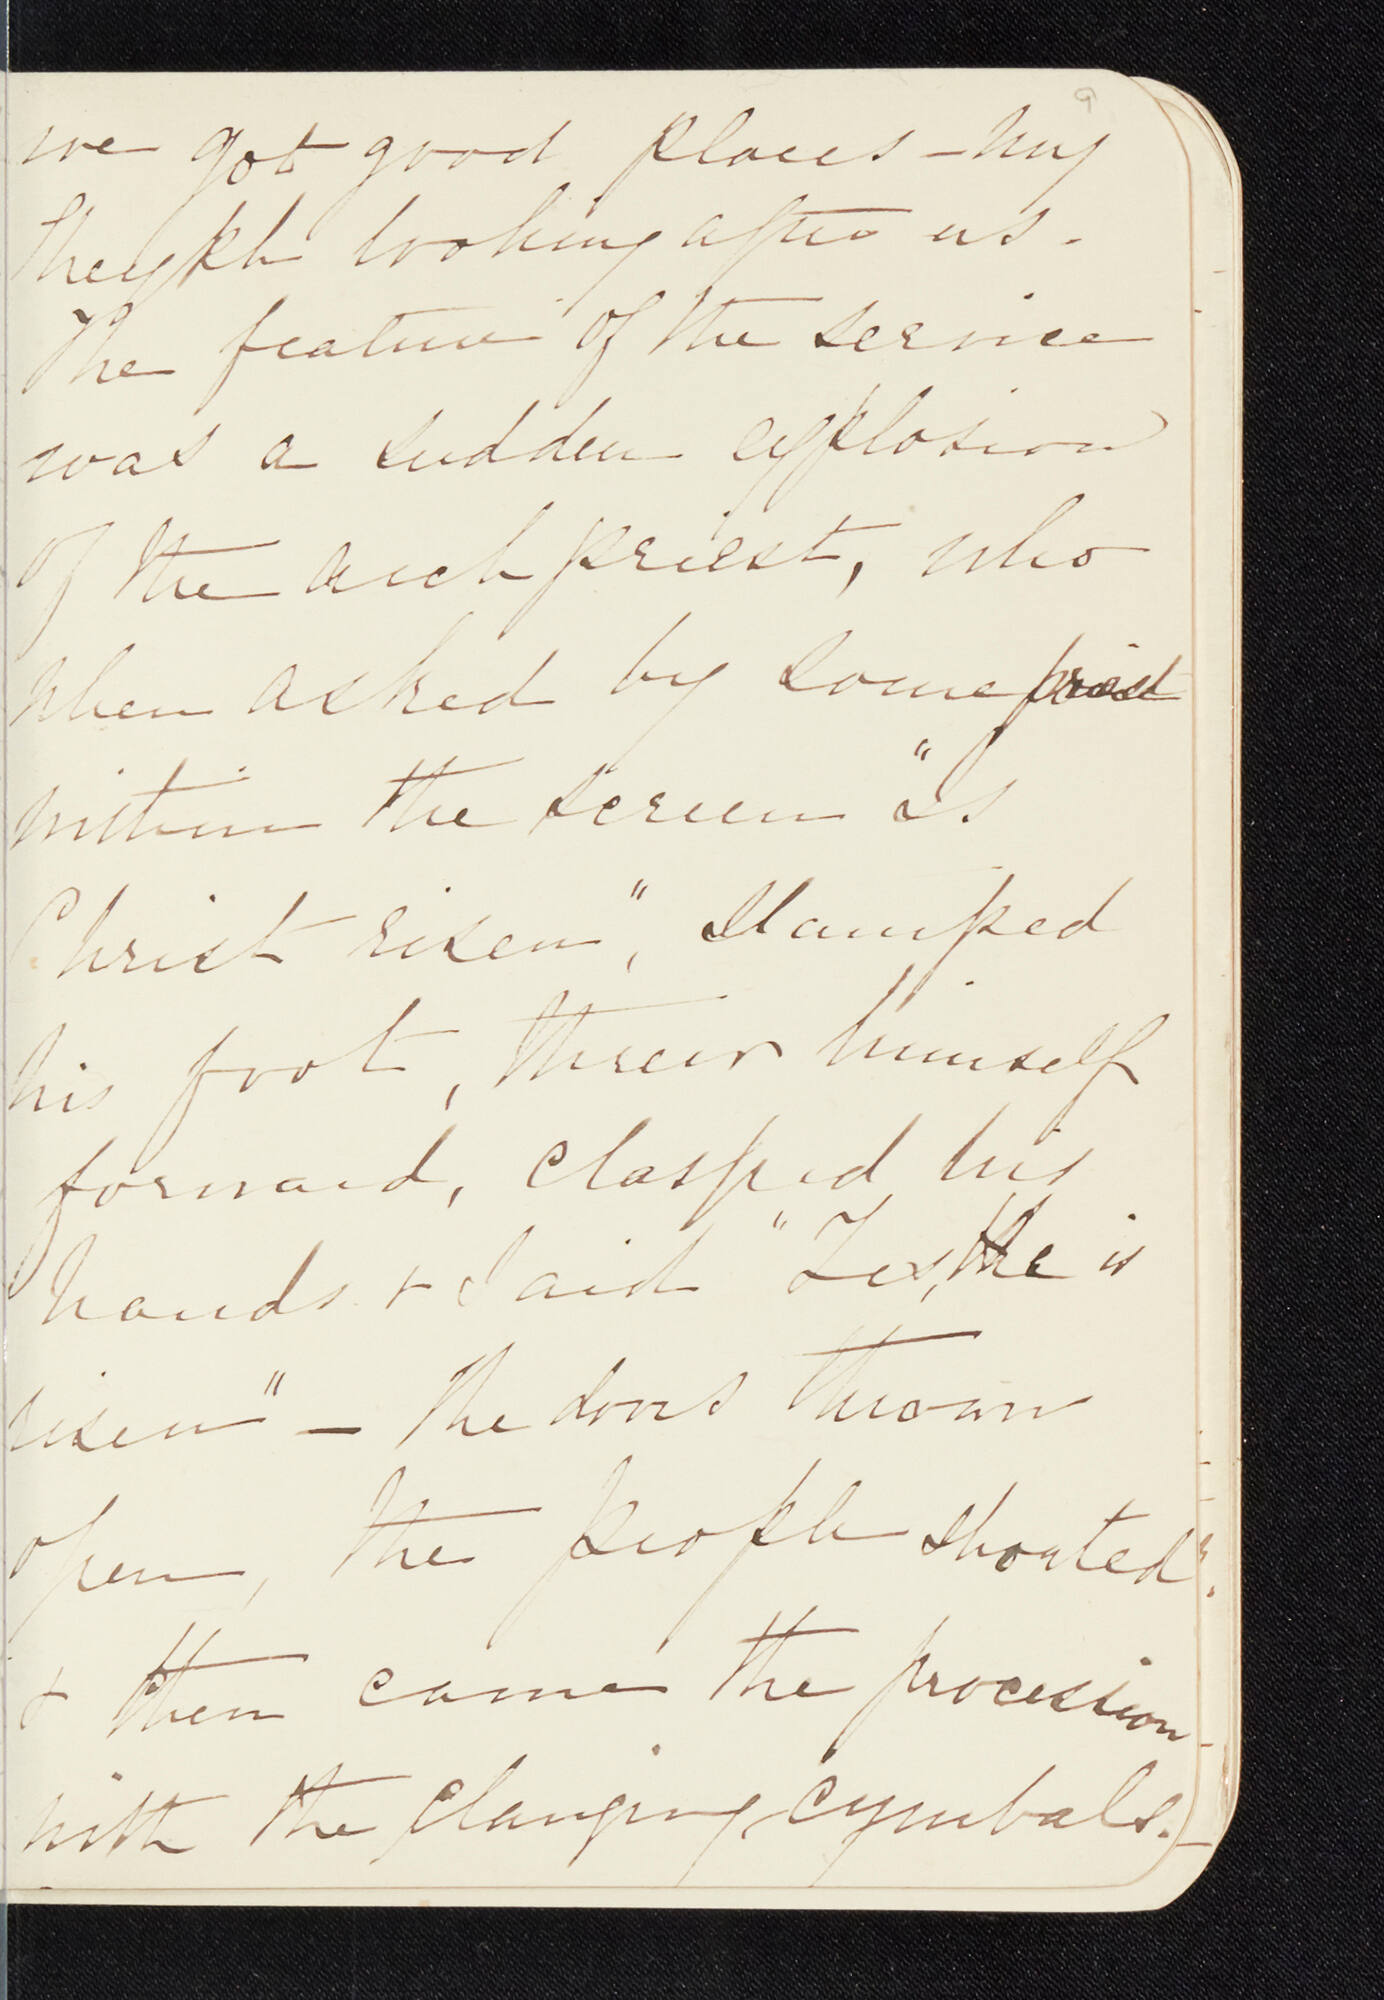 9
we got good places - my
looking after us.
The feature of the service
was a sudden explosion
of the arch priest, who
when asked by some priest
within the screen "Is
Christ risen", stamped
his foot, threw himself
forward, clasped his
hands & said "Yes, He is
risen" - the doors thrown
open, the people shouted.
& then came the procession
with the clanging cymbals.